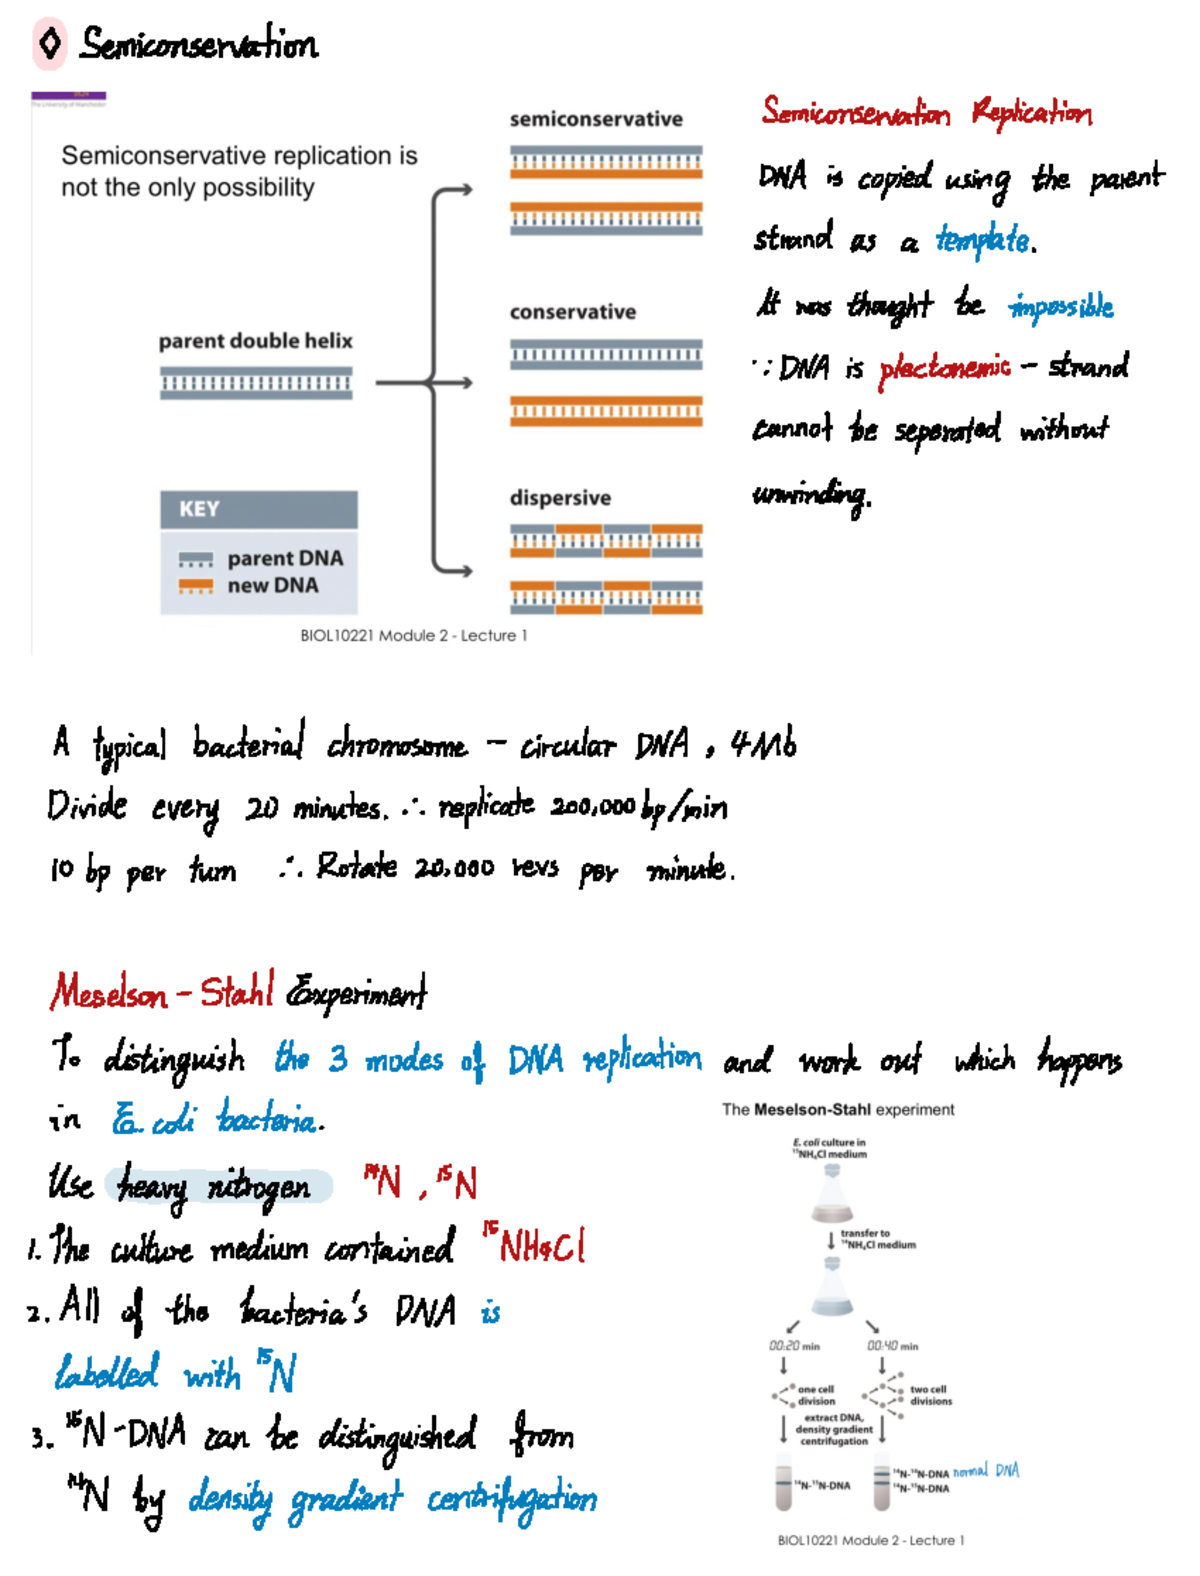 ◊ Semiconservation
The University of Manchester
Semiconservative replication is
not the only possibility
parent double helix
KEY
parent DNA
new DNA
semiconservative
conservative
dispersive
BIOL10221 Module 2 - Lecture 1
Semiconservation Replication
DNA is copied using the parent
strand as a template.
It was thought be impossible
∵ DNA is plectonemic – strand
cannot be seperated without
unwinding.
A typical bacterial chromosome – circular DNA, 4Mb
Divide every 20 minutes. ∴ replicate 200,000 bp/min
10 bp per turn ∴ Rotate 20,000 revs per minute.
Meselson – Stahl Experiment
To distinguish the 3 modes of DNA replication and work out which happens
in E. coli bacteria.
Use heavy nitrogen ¹⁴N, ¹⁵N
1. The culture medium contained ¹⁵NH4Cl
2. All of the bacteria's DNA is
labelled with ¹⁵N
3. ¹⁵N-DNA can be distinguished from
¹⁴N by density gradient centrifugation
The Meselson-Stahl experiment
E. coli culture in
¹⁵NH₄Cl medium
transfer to
¹⁴NH₄Cl medium
00:20 min 00:40 min
one cell
division
two cell
divisions
extract DNA,
density gradient
centrifugation
¹⁴N-¹⁵N-DNA
¹⁴N-¹⁴N-DNA normal DNA
¹⁴N-¹⁵N-DNA
BIOL10221 Module 2 - Lecture 1